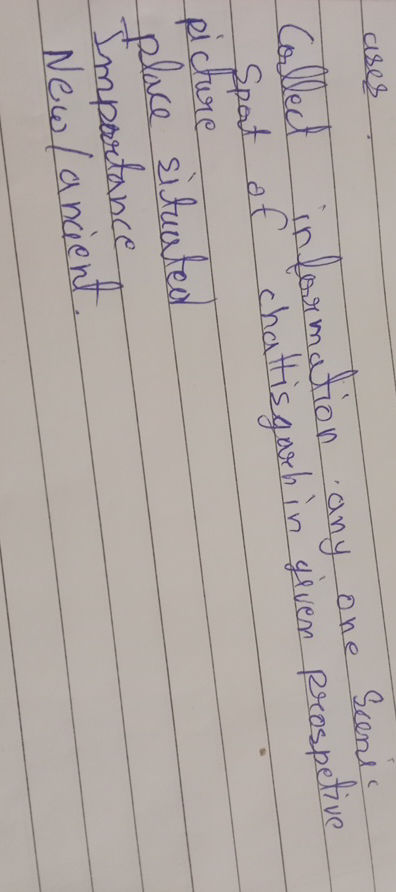 uses.
Collect information any one Scenic
Spot of chattisgarh in given prospetive
picture
place situated
Importance
New / ancient.